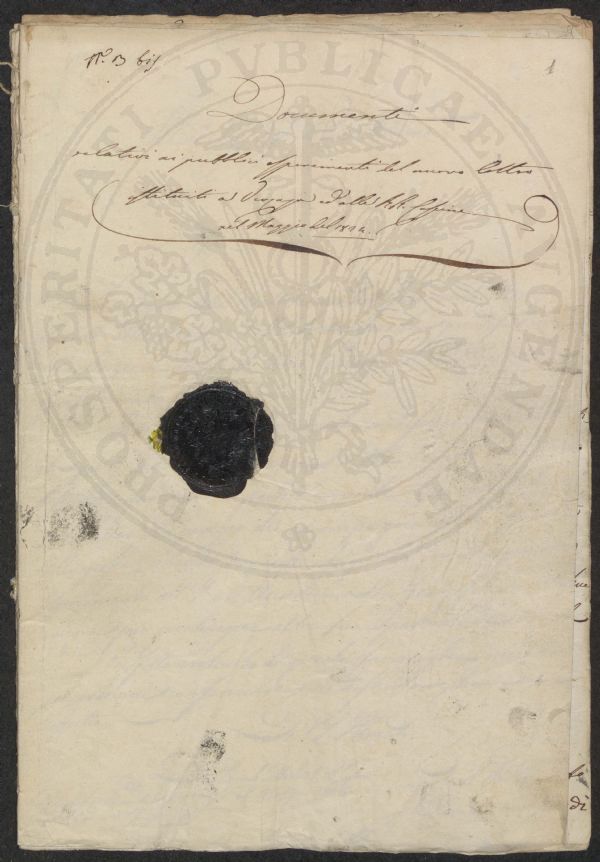 N.° 13 bis
1
Documenti
relativi ai pubblici esperimenti del nuovo Coltro
istituiti a e alle RR. Cascine
nel Maggio del 1824.
PROSPERITATI PUBLICAE AUGENDAE
te
di